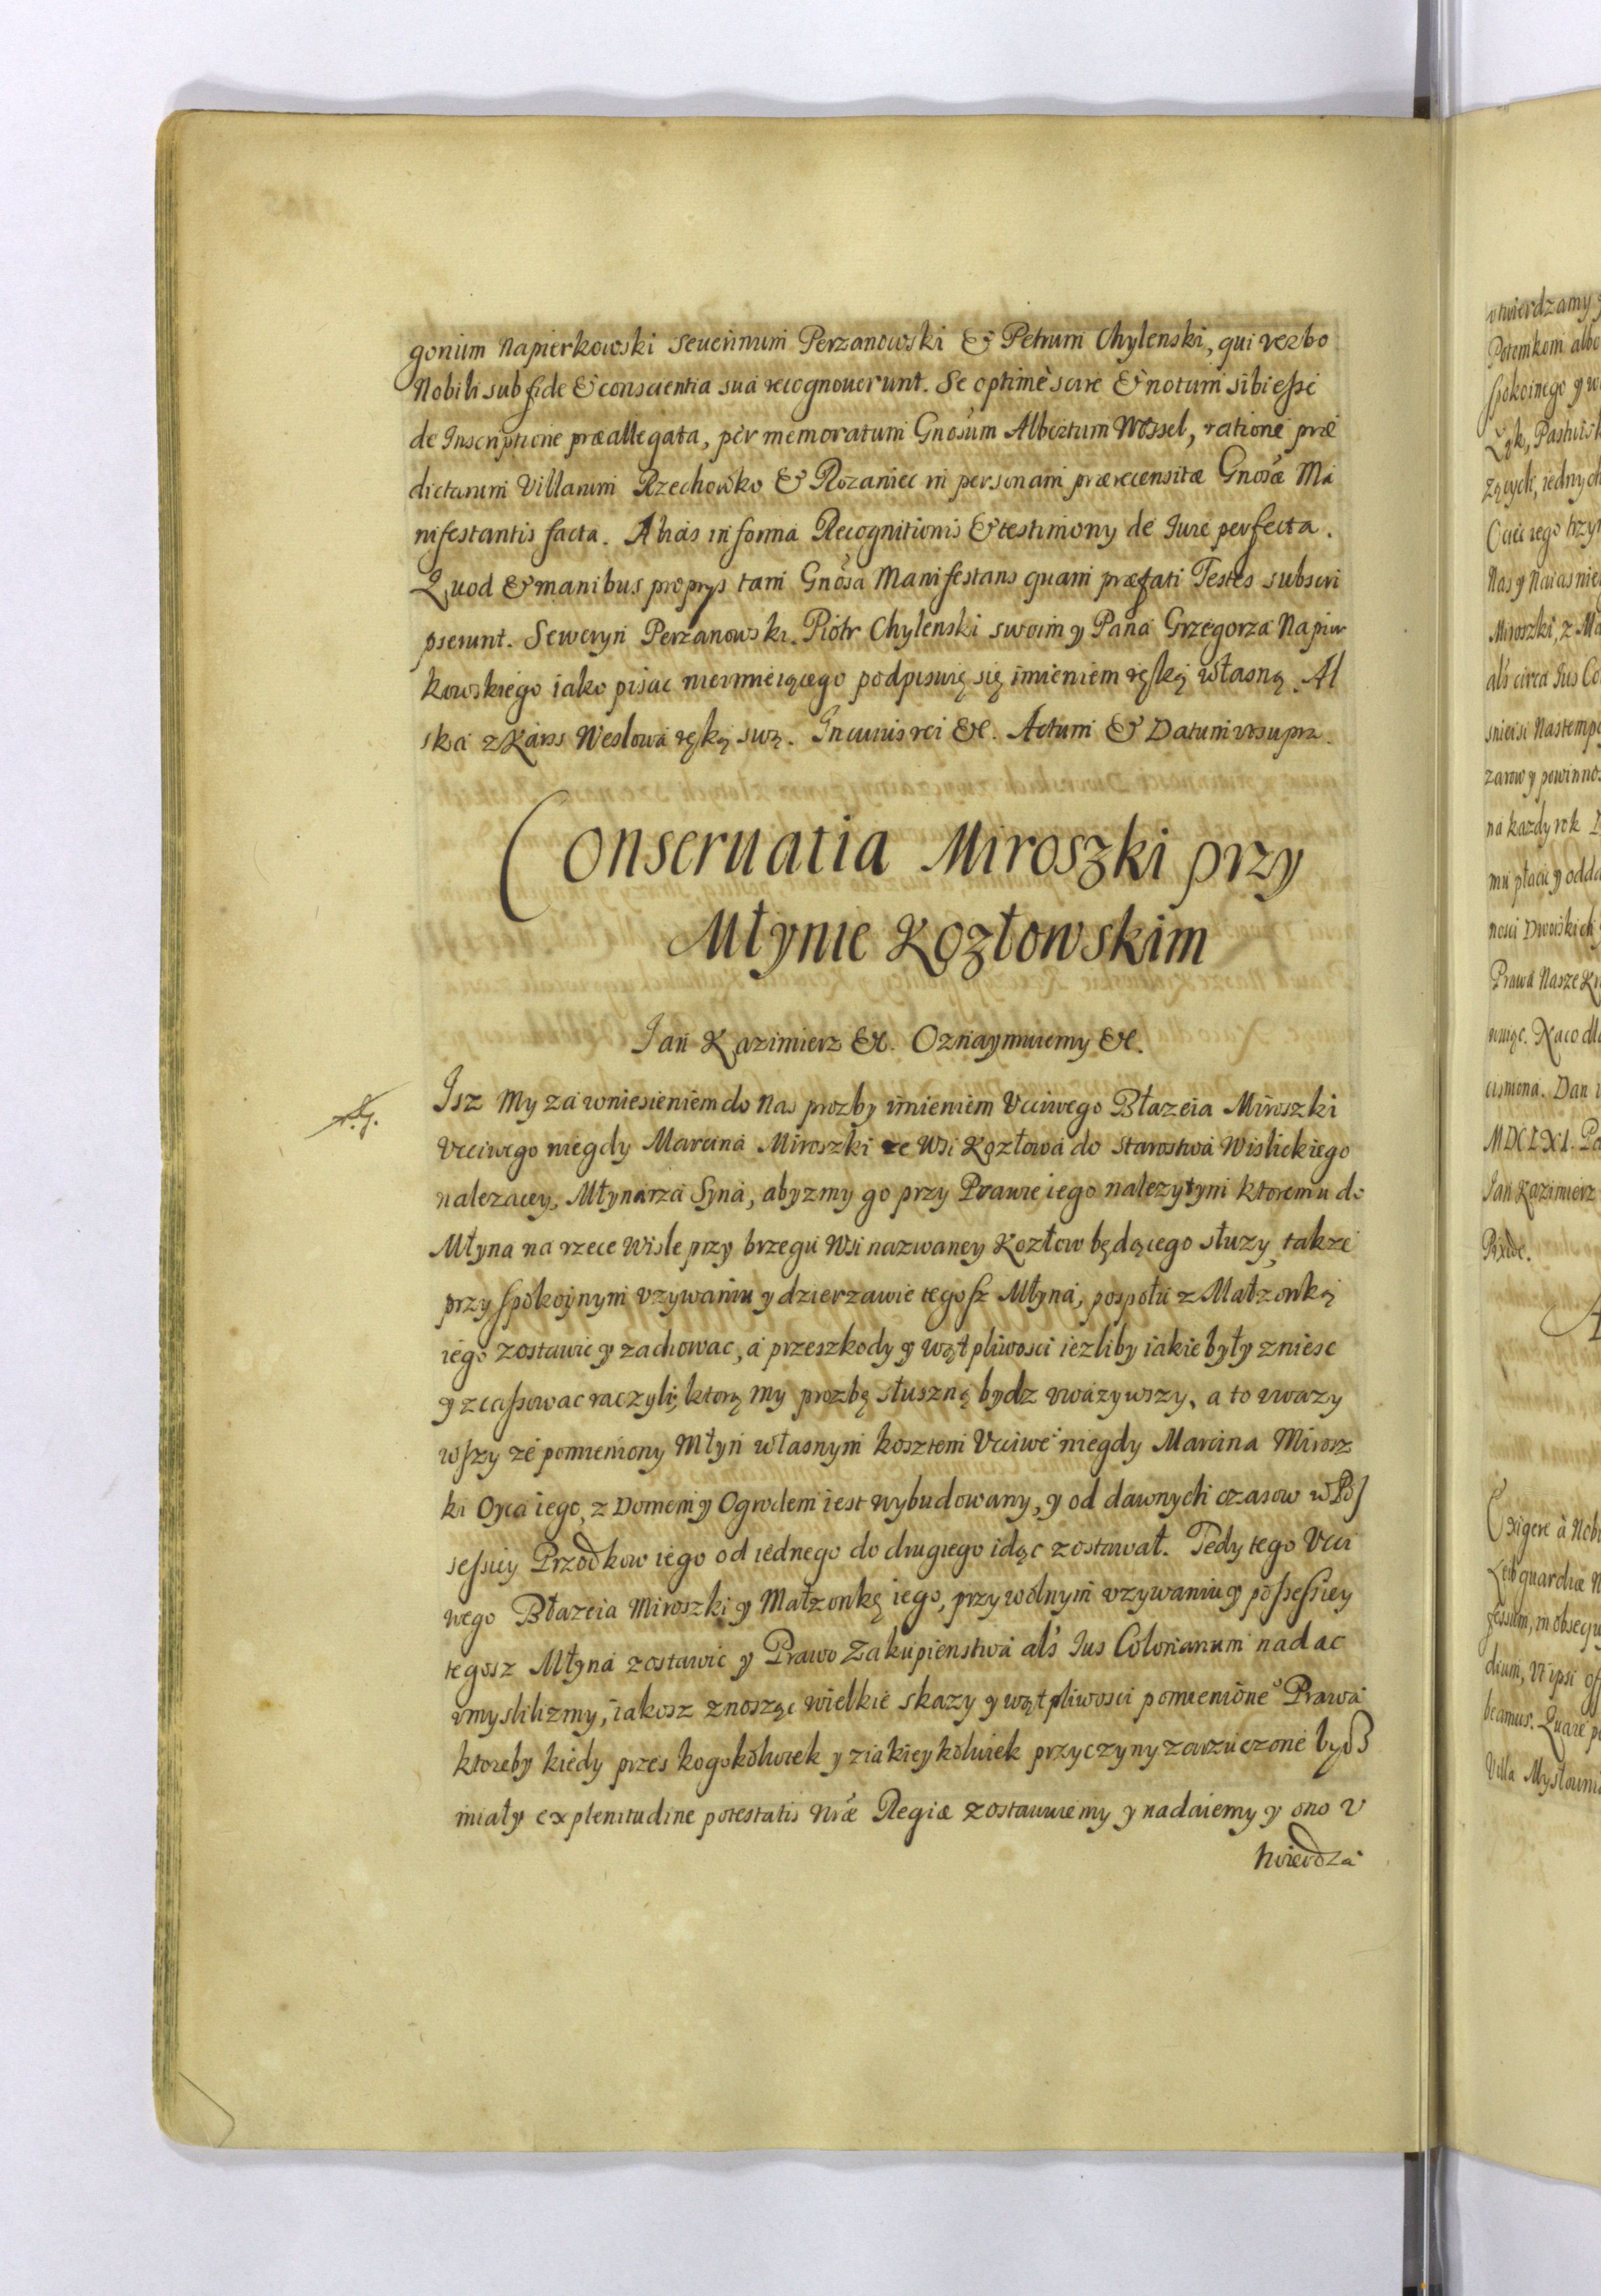 gorium Napierkowski Seuerinum Perzanowski & Petrum Chylenski, qui verbo
Nobili sub fide & conscientia sua recognouerunt. Se optimè scire & notum sibi esse
de Inscriptione præallegata, per memoratum Gnosum Albertum Wessel, ratione præ
dictarum Villarum Rzechowko & Rozaniec in personam prærecensitæ Gnosæ Ma
nifestantis facta. Alias in forma Recognitionis & testimony de Iure perfecta.
Quod & manibus proprys tam Gnosa Manifestans quam præfati Testes subscri
pserunt. Seweryn Perzanowski. Piotr Chylenski swoim y Pana Grzegorza Napier
kowskiego iako pisac nieumieiącego podpisuię się imieniem ręką własną. Al
ska z Karss Weslowa ręką swą. In cuius rei &c. Actum & Datum vt supra.
Conseruatia Miroszki przy
Młynie Kozłowskim
Jan Kazimierz &c. Oznaymuiemy &c.
Jsz My za wniesieniem do Nas prozby imieniem Vcciwego Błazeia Miroszki
Vcciwego niegdy Marcina Miroszki ze Wsi Kozłowa do Starostwa Wislickiego
nalezacey, Młynarza Syna, abyzmy go przy Prawie iego nalezytym ktoremu do
Młyna na rzece Wisle przy brzegu Wsi nazwaney Kozłow będącego słuzy, takze
przy spokoynym vzywaniu y dzierzawie tegosz Młyna, pospołu z Małzonką
iego zostawic y zachowac, a przeszkody y wątpliwosci iezliby iakie były zniesc
y zcassowac raczyli, ktorą my prozbę słuszną bydz vwazywszy, a to vwazy
wszy ze pomieniony Młyn własnym kosztem Vcciwe° niegdy Marcina Mirosz
ki Oyca iego, z Domem y Ogrodem iest wybudowany, y od dawnych czasow w Pos
sessiey Przodkow iego od iednego do drugiego idąc zostawał. Tedy tego Vcci
wego Błazeia Miroszki y Małzonkę iego, przy wolnym vzywaniu y possessiey
tegosz Młyna zostawic y Prawo Zakupienstwa als Ius Colonarium nadac
vmyslilizmy, iakosz znosząc wielkie skazy y wątpliwosci pomienione° Prawa
ktoreby kiedy przes kogokolwiek y z iakieykolwiek przyczyny zarzuczone bydz
miały ex plenitudine potestatis Nræ Regiæ zostawuiemy y nadaiemy y ono v
twierdza